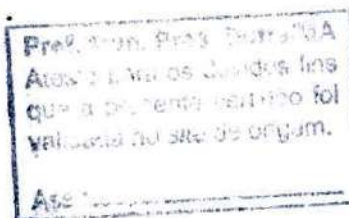 Pref. Mun. Pres. Dutra/MA
Atesto para os devidos fins
que a presente certidão foi
validada no site de origem.